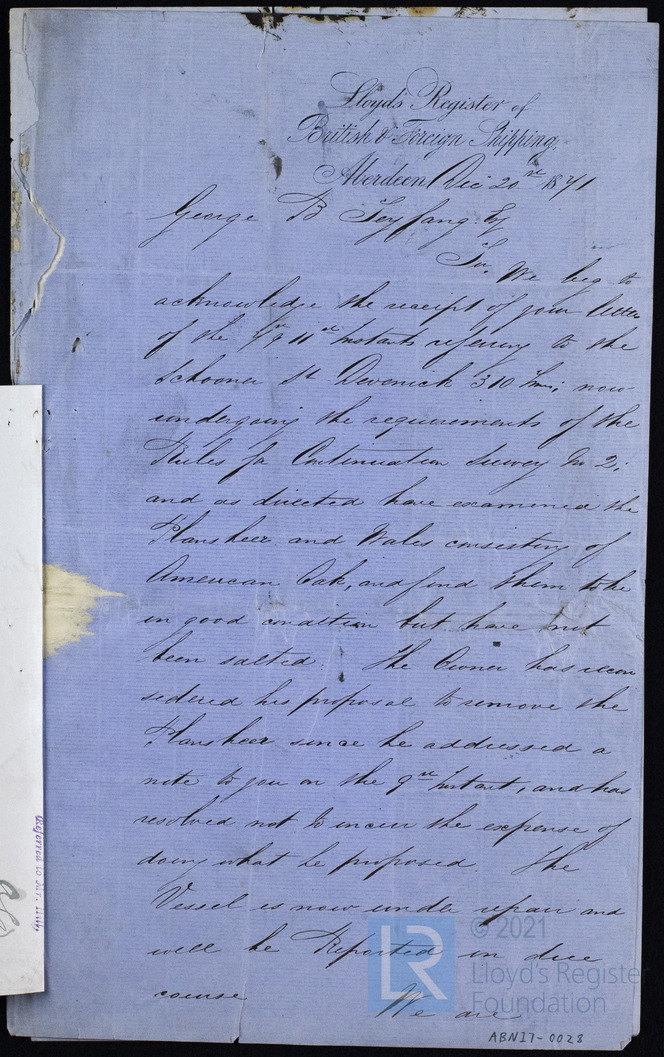 Lloyd's Register of
British & Foreign Shipping,
Aberdeen Dec 20th 1871
George B Seyfang Esq
Sir, We beg to
acknowledge the receipt of your letter
of the & 11th Instants refering to the
Schooner St Devenick 310 Tons; now
undergoing the requirements of the
Rules for Continuation Survey No 2;
and as directed have examined the
Plansheer and Wales consisting of
American Oak, and find them to be
in good condition but have not
been salted. The Owner has recon
sidered his proposal to remove the
Plansheer since he addressed a
note to you on the 9th Instant, and has
resolved not to incur the expense of
doing what he proposed. The
Vessel is now under repair and
will be Reported in due
course We are
Referred to Mr.
LR
© 2021
Lloyd's Register
Foundation
ABN17-0028